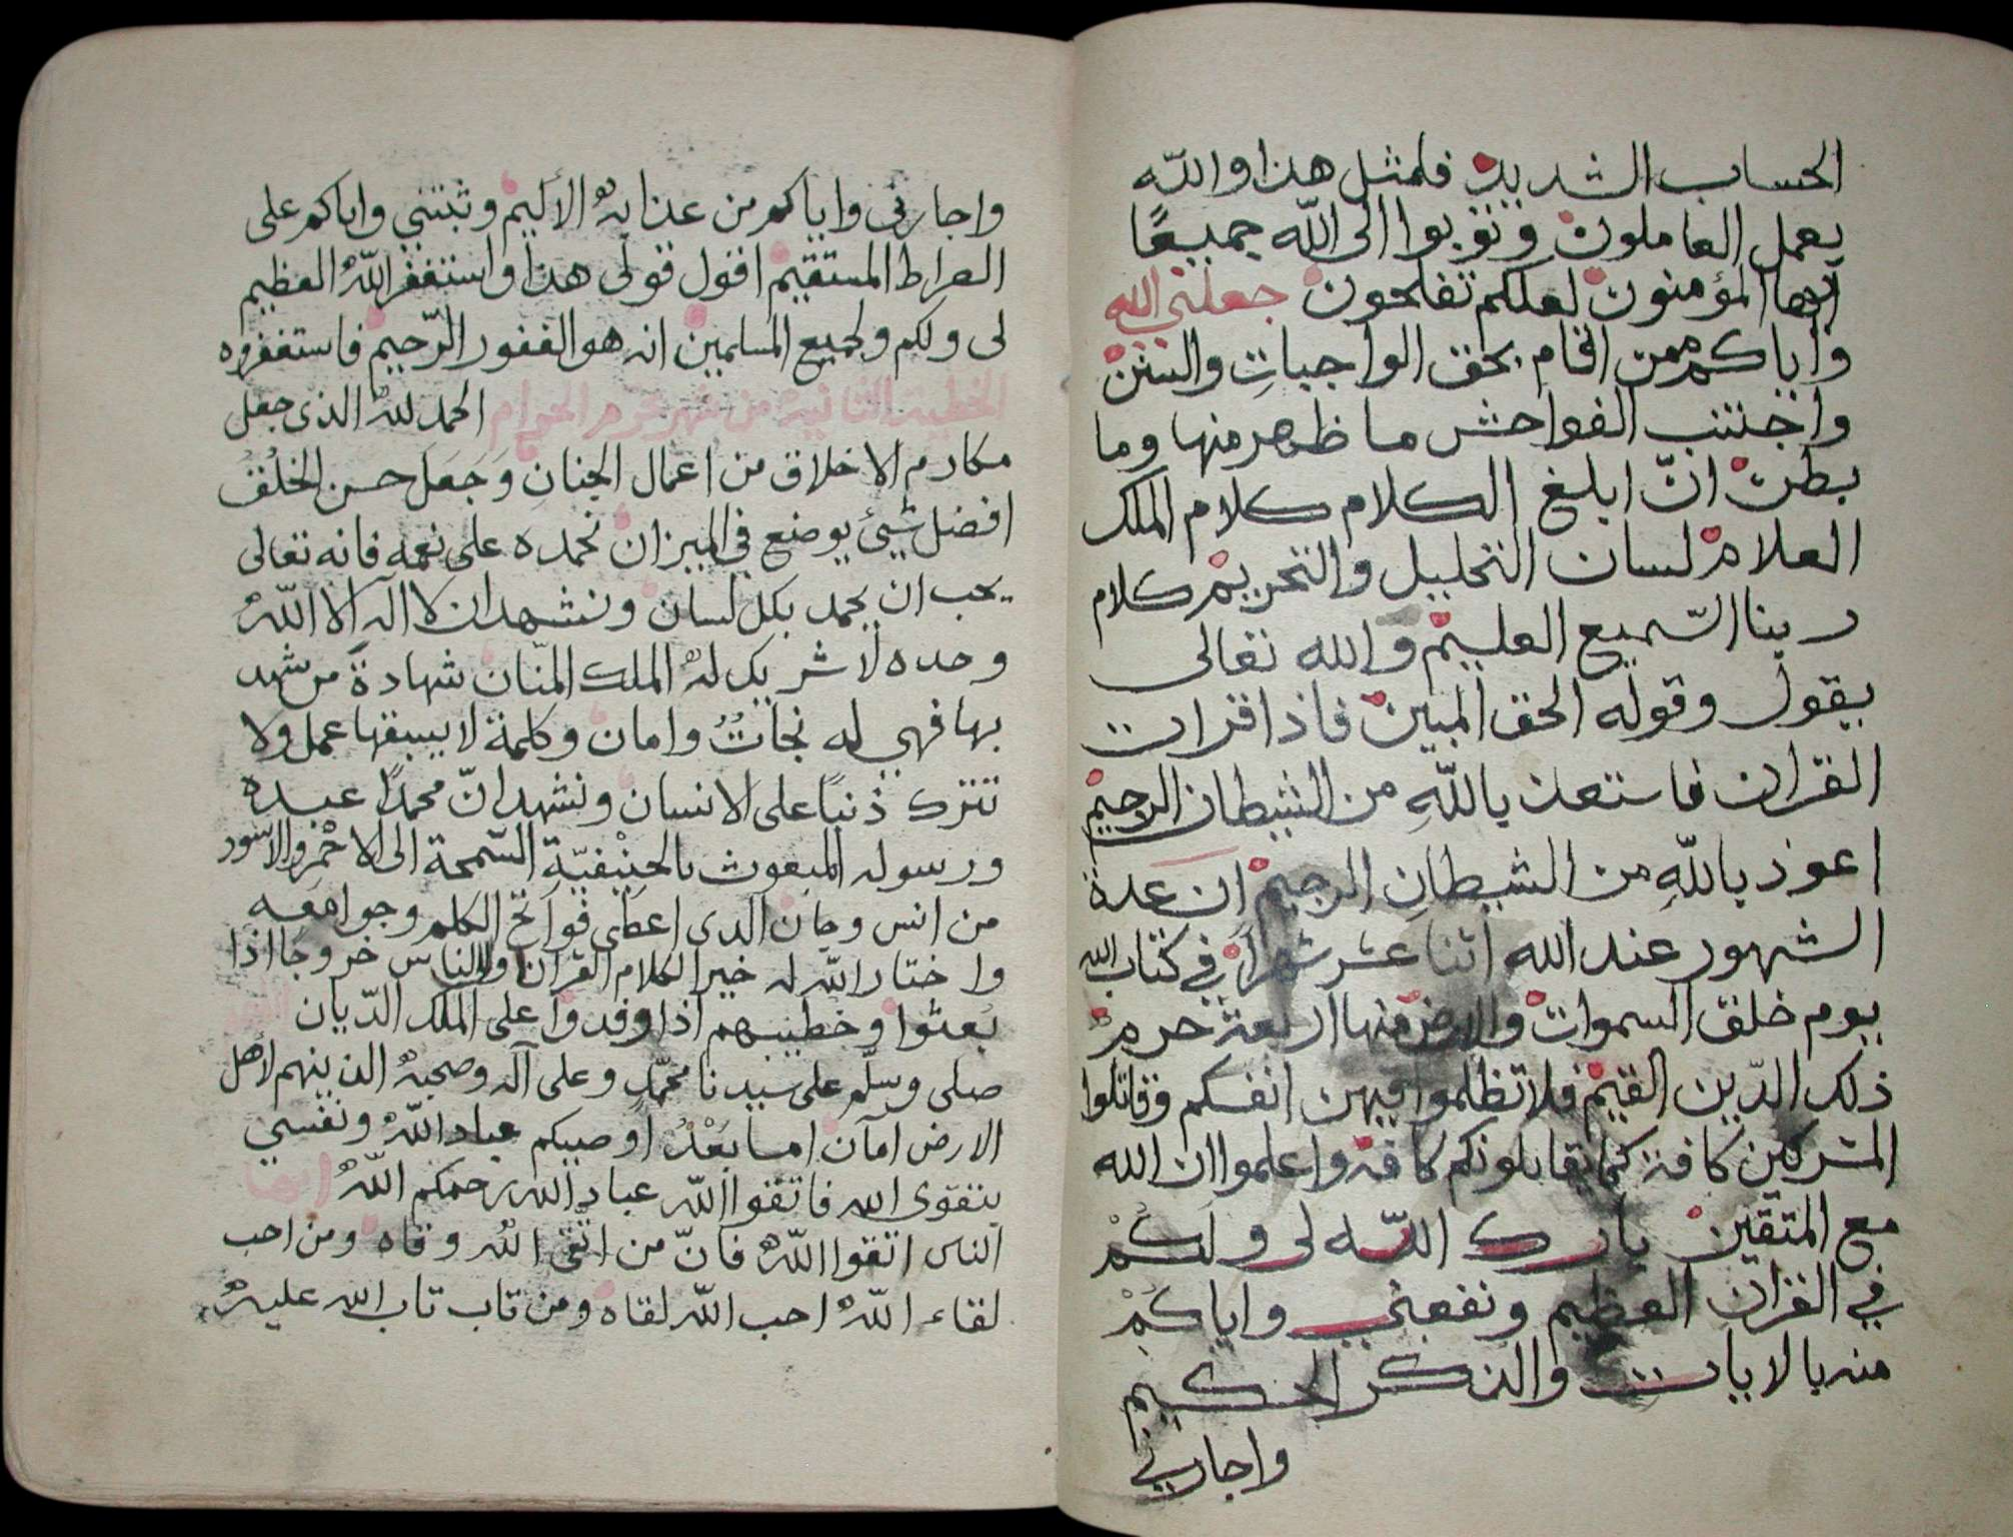 الحساب الشديد فلمثل هذا والله
يعمل العاملون وتوبوا الى الله جميعًا
ايها المؤمنون لعلكم تفلحون جعلني الله
واياكم ممن اقام بحق الواجبات والسنن
واجتنب الفواحش ما ظهر منها وما
بطن انّ ابلغ الكلام كلام الملك
العلام لسان التحليل والتحريم كلام
ربنا السّميع العليم والله تعالى
يقول وقوله الحق المبين فاذا قرات
القران فاستعذ باللّهِ من الشيطان الرجيم
اعوذ باللّهِ من الشيطانِ الرجيم ان عدة
الشهور عند الله اثنا عشر شهرًا في كتاب الله
يوم خلق السموات والارض منها اربعة حرم
ذلك الدّين القيم فلا تظلموا فيهن انفسكم وقاتلوا
المشركين كافة كما يقاتلونكم كافة واعلموا ان الله
مع المتقين بارك اللّه لى ولكم
في القران العظيم ونفعني واياكم
منه بالايات والذكر الحكيم
واجارني
واجارنى واياكم من عذابه الأليم وثبتني واياكم على
الصراط المستقيم اقول قولى هذا واستغفر اللّه العظيم
لى ولكم ولجميع المسلمين انه هو الغفور الرّحيم فاستغفروه
الخطبة الثانية من شهر محرم الحرام الحمد للّه الذى جعل
مكارم الاخلاق من اعمال الجنان وَجَعَلَ حسن الخلق
افضل شيئ يوضع في الميزان نحمده على نعمه فانه تعالى
يحب ان يحمد بكل لسان ونشهد ان لا اله الا اللّه
وحده لا شريك له الملك المنّان شهادةً من شهد
بها فهي له نجاتٌ وامان وكلمة لا يسبقها عمل ولا
تترك ذنبًا على الانسان ونشهد انّ محمدًا عبده
ورسوله المبعوث بالحنِيْفيّةِ السّمحة الى الاحْمر والاسود
من انس وجان الذى اعطى فواتح الكلم وجوامعه
واختار اللّه له خير الكلام القران والناس خروجًا اذا
بُعثوا وخطيبهم اذا وفدوا على الملك الدّيان
صلى وسلّم على سيدنا محمّدٍ وعلى آله وصحبه الذينهم لاهل
الارض امآن امابَعْدُ اوصيكم عباد اللّه ونفسي
بتقوى الله فاتقوا اللّه عباد الله رحمكم اللّه ايها
الناس اتقوا اللّه فانّ من اتقى اللّه وقاه ومن احب
لقاء اللّه احب اللّه لقاه ومن تاب تاب الله عليه